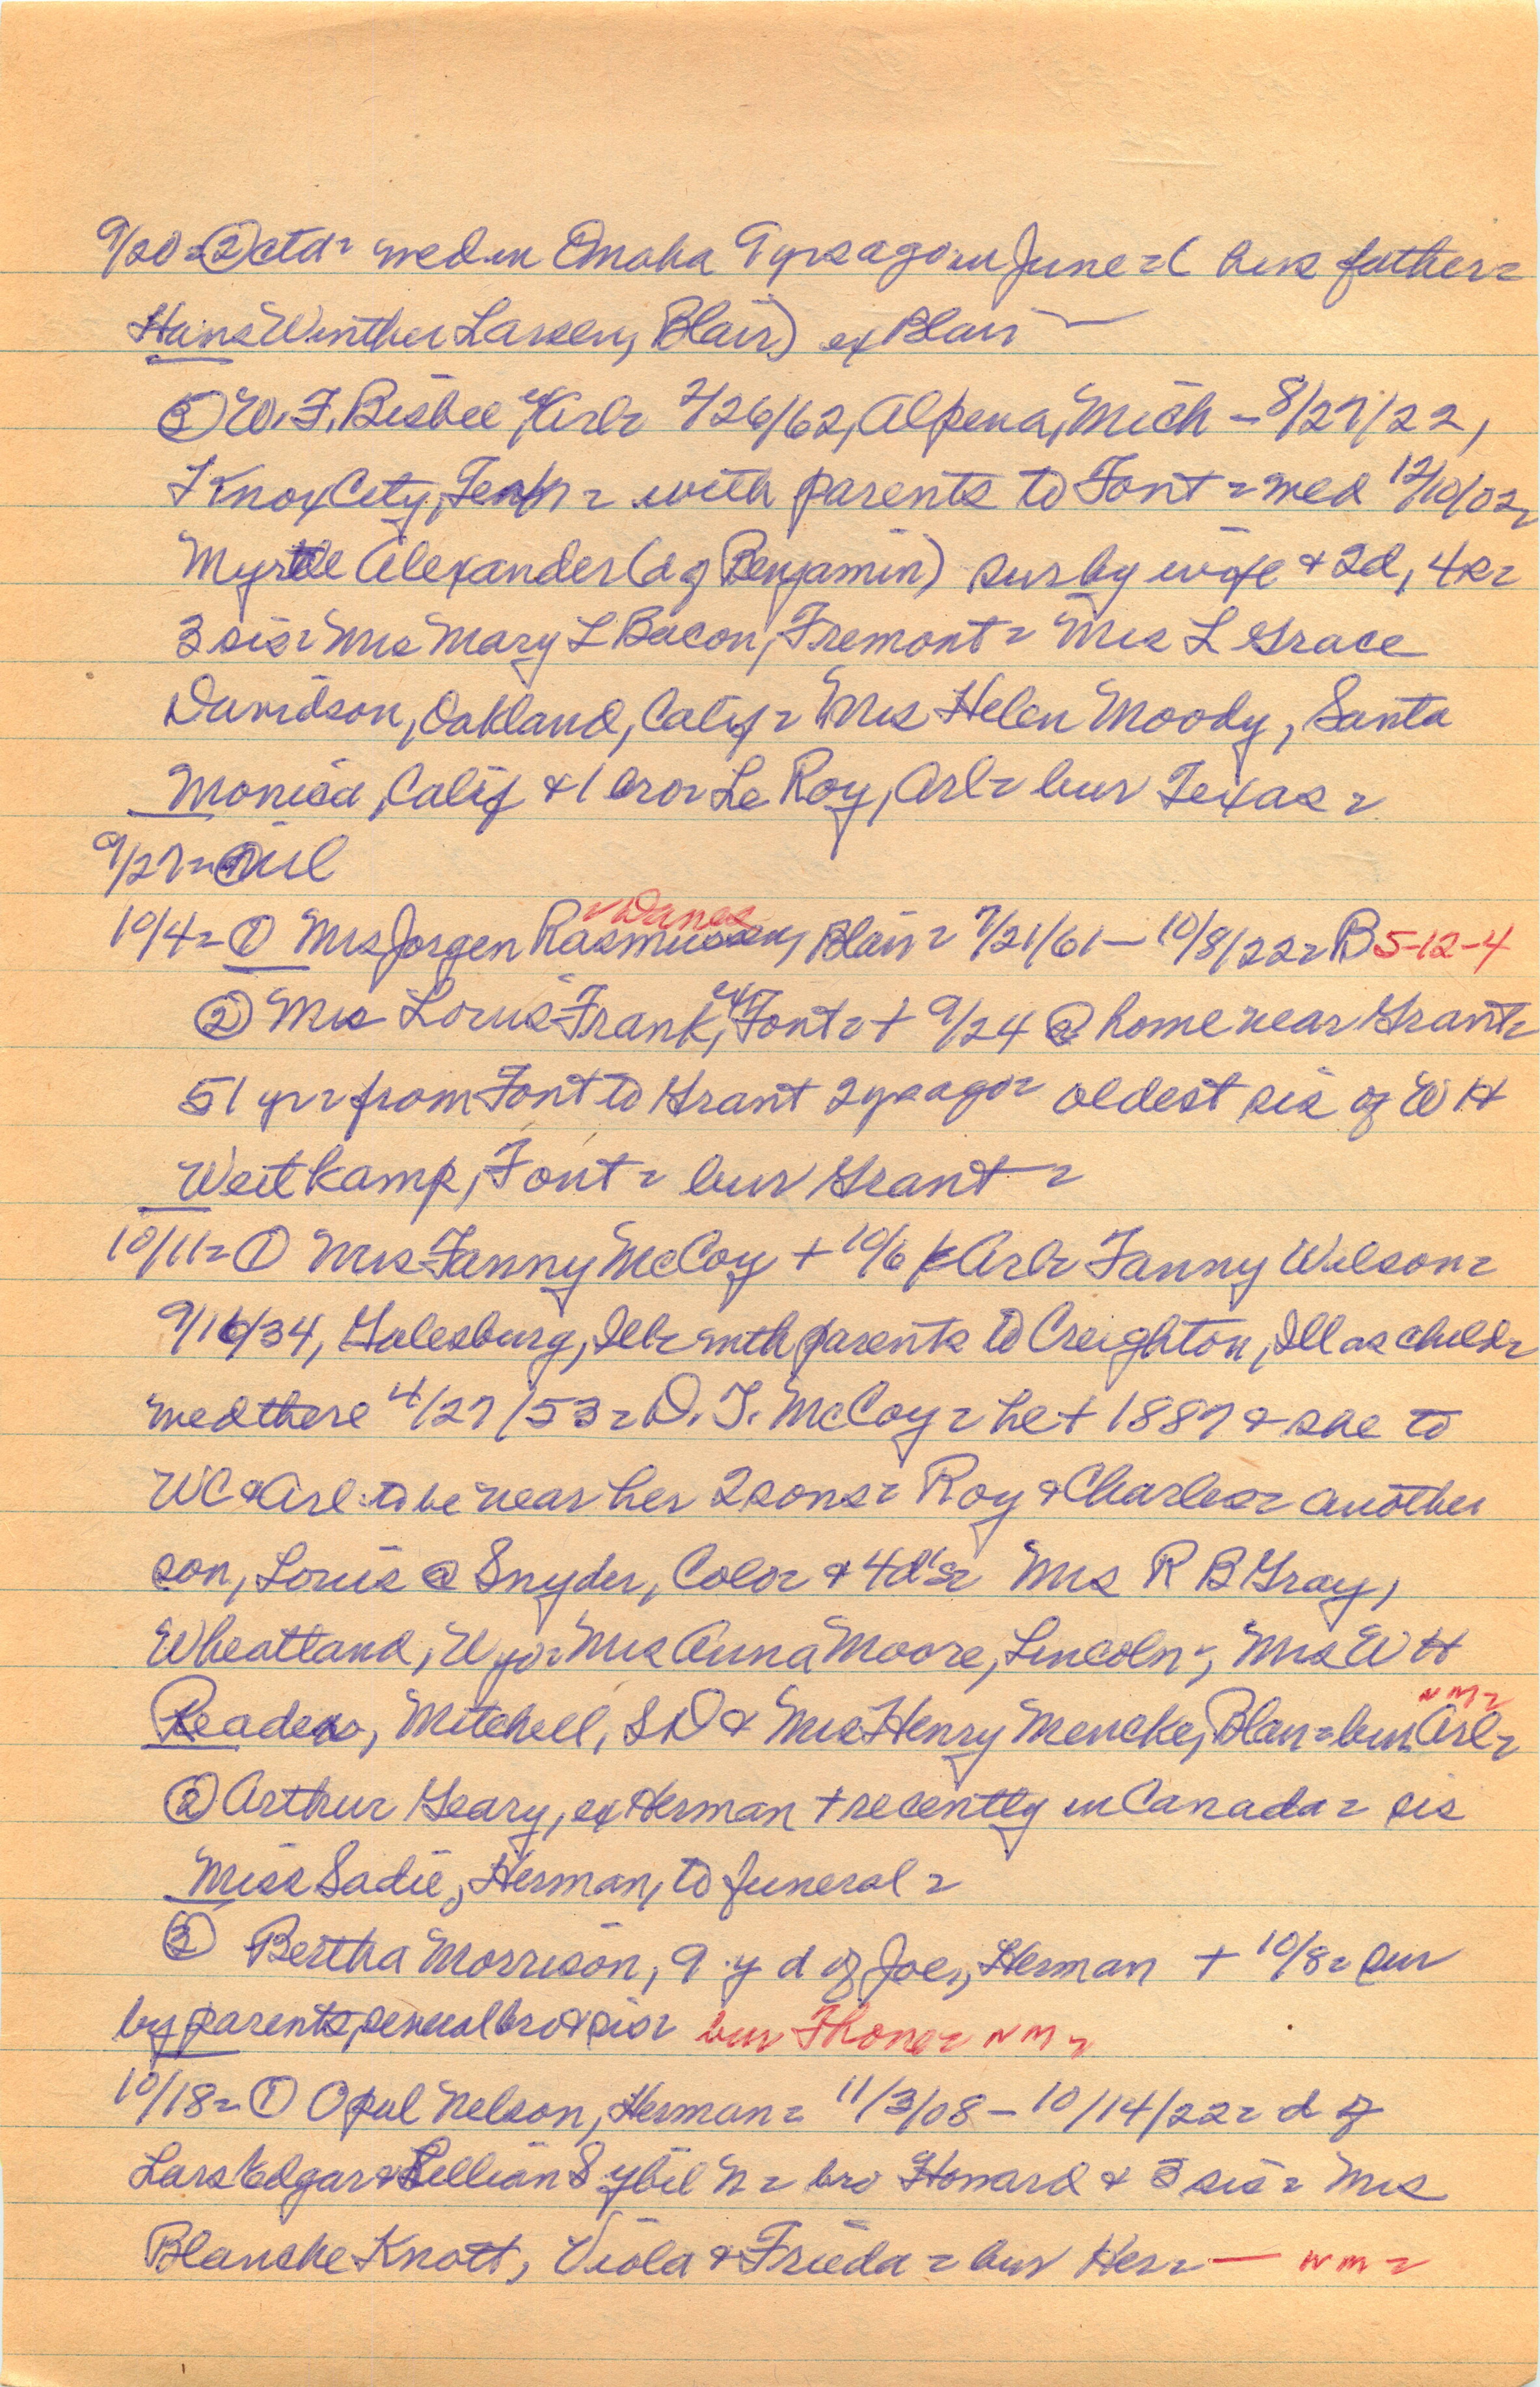 9/20 = ② ctd = med in Omaha 9 yrs ago in June = ( his father =
Hans Winther Larsen, Blair) ex Blair
③ W. F. Bisbee, ex Arl = 2/26/62, Alpena, Mich - 8/27/22,
Knox City, Tenn = with parents to Font = med 12/10/02 =
Myrtle Alexander (d of Benjamin) sur by wife + 2d, 4s =
3 sis = Mrs Mary L Bacon, Fremont = Mrs L Grace
Davidson, Oakland, Calif = Mrs Helen Moody, Santa
Monica, Calif + 1 bro = Le Roy, Arl = bur Texas =
9/27 = Nil
Danes
10/4 = ① Mrs Jorgen Rasmussen, Blair = 7/21/61 - 10/8/22 = B 5-12-4
② Mrs Louis Frank, ex Font = + 9/24 @ home near Grant =
51 yr = from Font to Grant 2 yrs ago = oldest sis of W H
Weitkamp, Font = bur Grant =
10/11 = ① Mrs Fanny McCoy + 10/6 Arl = Fanny Wilson =
9/16/34, Galesburg, Ill = with parents to Creighton, Ill as child =
med there 4/27/53 = D. T. McCoy = he + 1887 + she to
WC + Arl to be near her 2 sons = Roy + Charles = another
son, Louis @ Snyder, Colo = + 4 d's = Mrs R B Gray,
Wheatland, Wyo = Mrs Anna Moore, Lincoln =, Mrs W H
Reader, Mitchell, SD + Mrs Henry Mencke, Blair = bur Arl = nm =
② Arthur Geary, ex Herman + recently in Canada = sis
Miss Sadie, Herman, to funeral =
③ Bertha Morrison, 9 y d of Joe, Herman + 10/8 = sur
by parents, several bro + sis = bur Thone = nm =
10/18 = ① Opal Nelson, Herman = 11/3/08 - 10/14/22 = d of
Lars Edgar + Lillian Sybil N = bro Howard + 3 sis = Mrs
Blanche Knott, Viola + Frieda = bur Her = - nm =